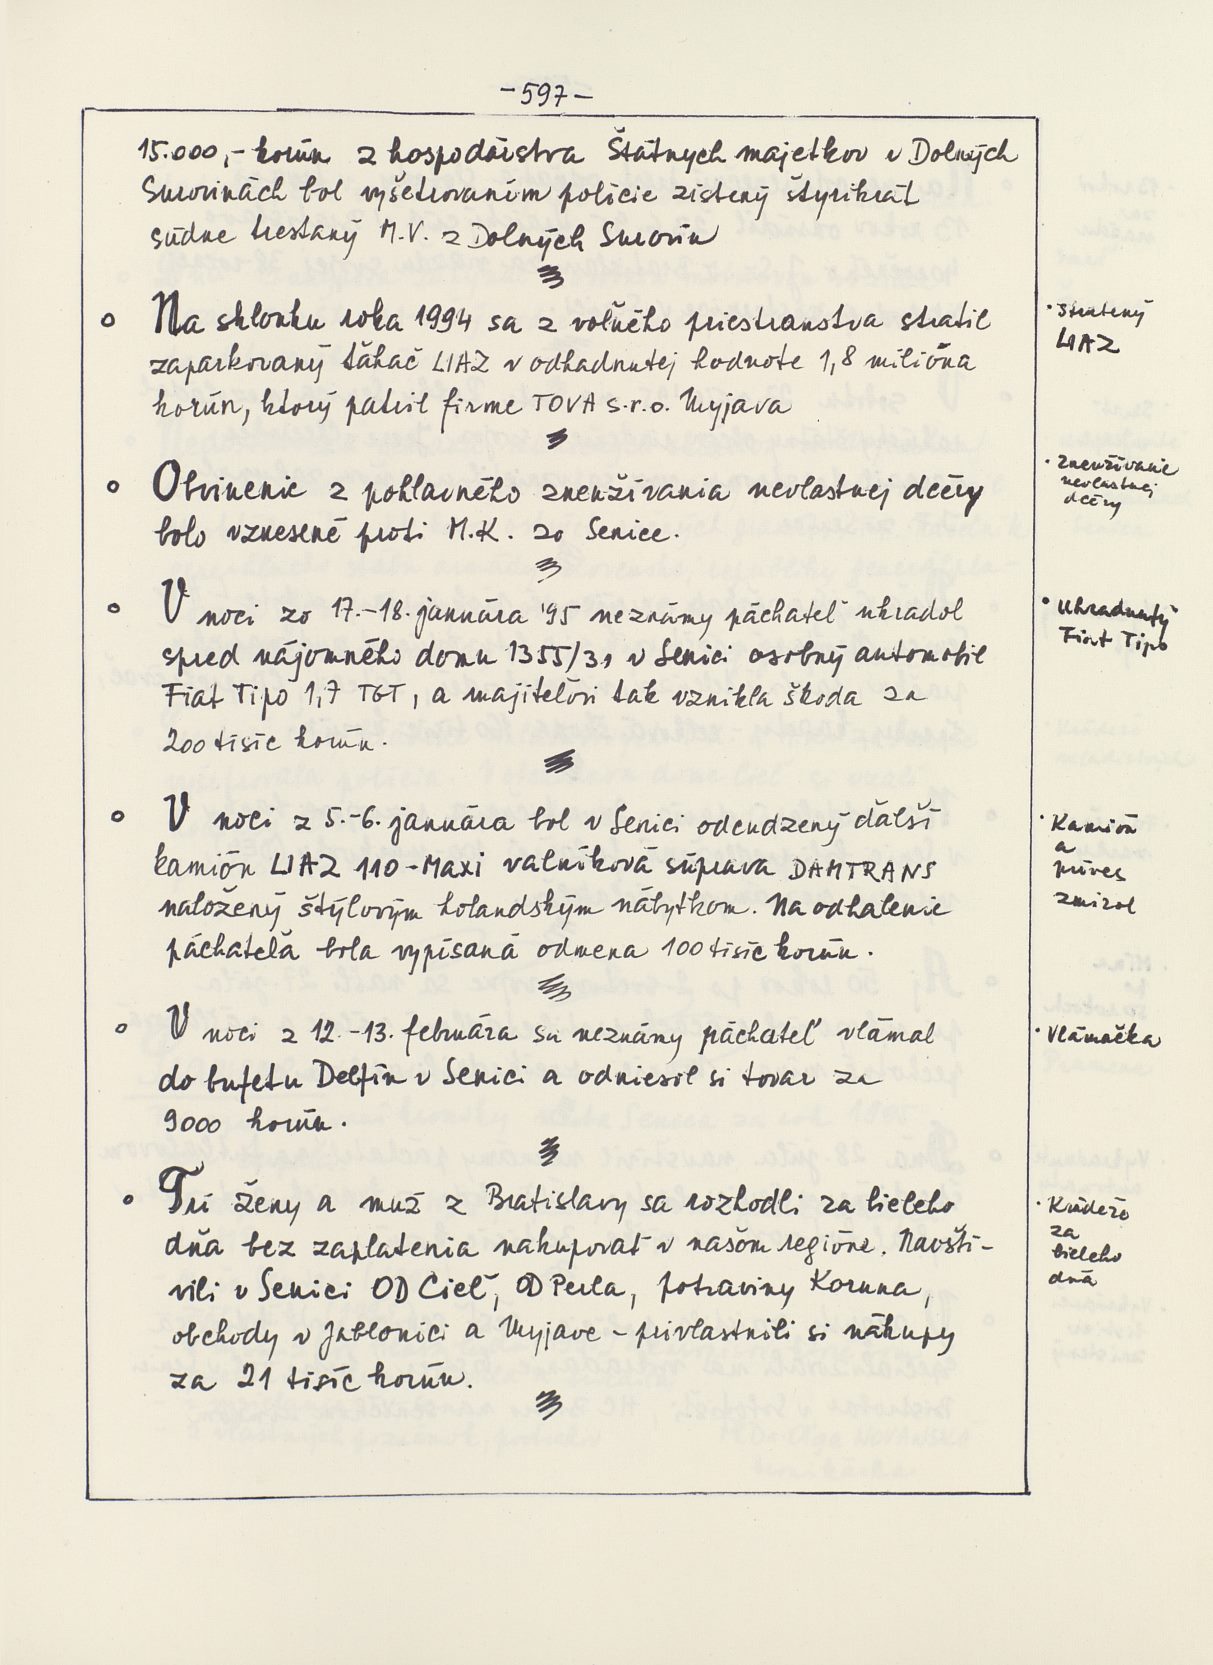 -597-
15.000,- korún z hospodárstva Štátnych majetkov v Dolných
Surovinách bol vyšetrovaním polície zistený štyrikrát
súdne trestaný M.V. z Dolných Surovín
Na sklonku roka 1994 sa z voľného priestranstva stratil
zaparkovaný ťahač LIAZ v odhadnutej hodnote 1,8 milióna
korún, ktorý patril firme TOVA s.r.o. Myjava
· Stratený
LIAZ
Obvinenie z pohlavného zneužívania nevlastnej dcéry
bolo vznesené proti M.K. zo Senice.
· Zneužívanie
nevlastnej
dcéry
V noci zo 17.-18. januára '95 neznámy páchateľ ukradol
spred nájomného domu 1355/31 v Senici osobný automobil
Fiat Tipo 1,7 TGT, a majiteľovi tak vznikla škoda za
200 tisíc korún.
· Ukradnutý
Fiat Tipo
V noci z 5.-6. januára bol v Senici odcudzený ďalší
kamión LIAZ 110-Maxi valníková súprava DAMTRANS
naložený štýlovým holandským nábytkom. Na odhalenie
páchateľa bola vypísaná odmena 100 tisíc korún.
· Kamión
a
príves
zmizol
V noci z 12.-13. februára sa neznámy páchateľ vlámal
do bufetu Delfín v Senici a odniesol si tovar za
9000 korún.
· Vlámačka
Tri ženy a muž z Bratislavy sa rozhodli za bieleho
dňa bez zaplatenia nakupovať v našom regióne. Navští-
vili v Senici OD Cieľ, OD Perla, potraviny Koruna,
obchody v Jablonici a Myjave - privlastnili si nákupy
za 21 tisíc korún.
· Krádeže
za
bieleho
dňa